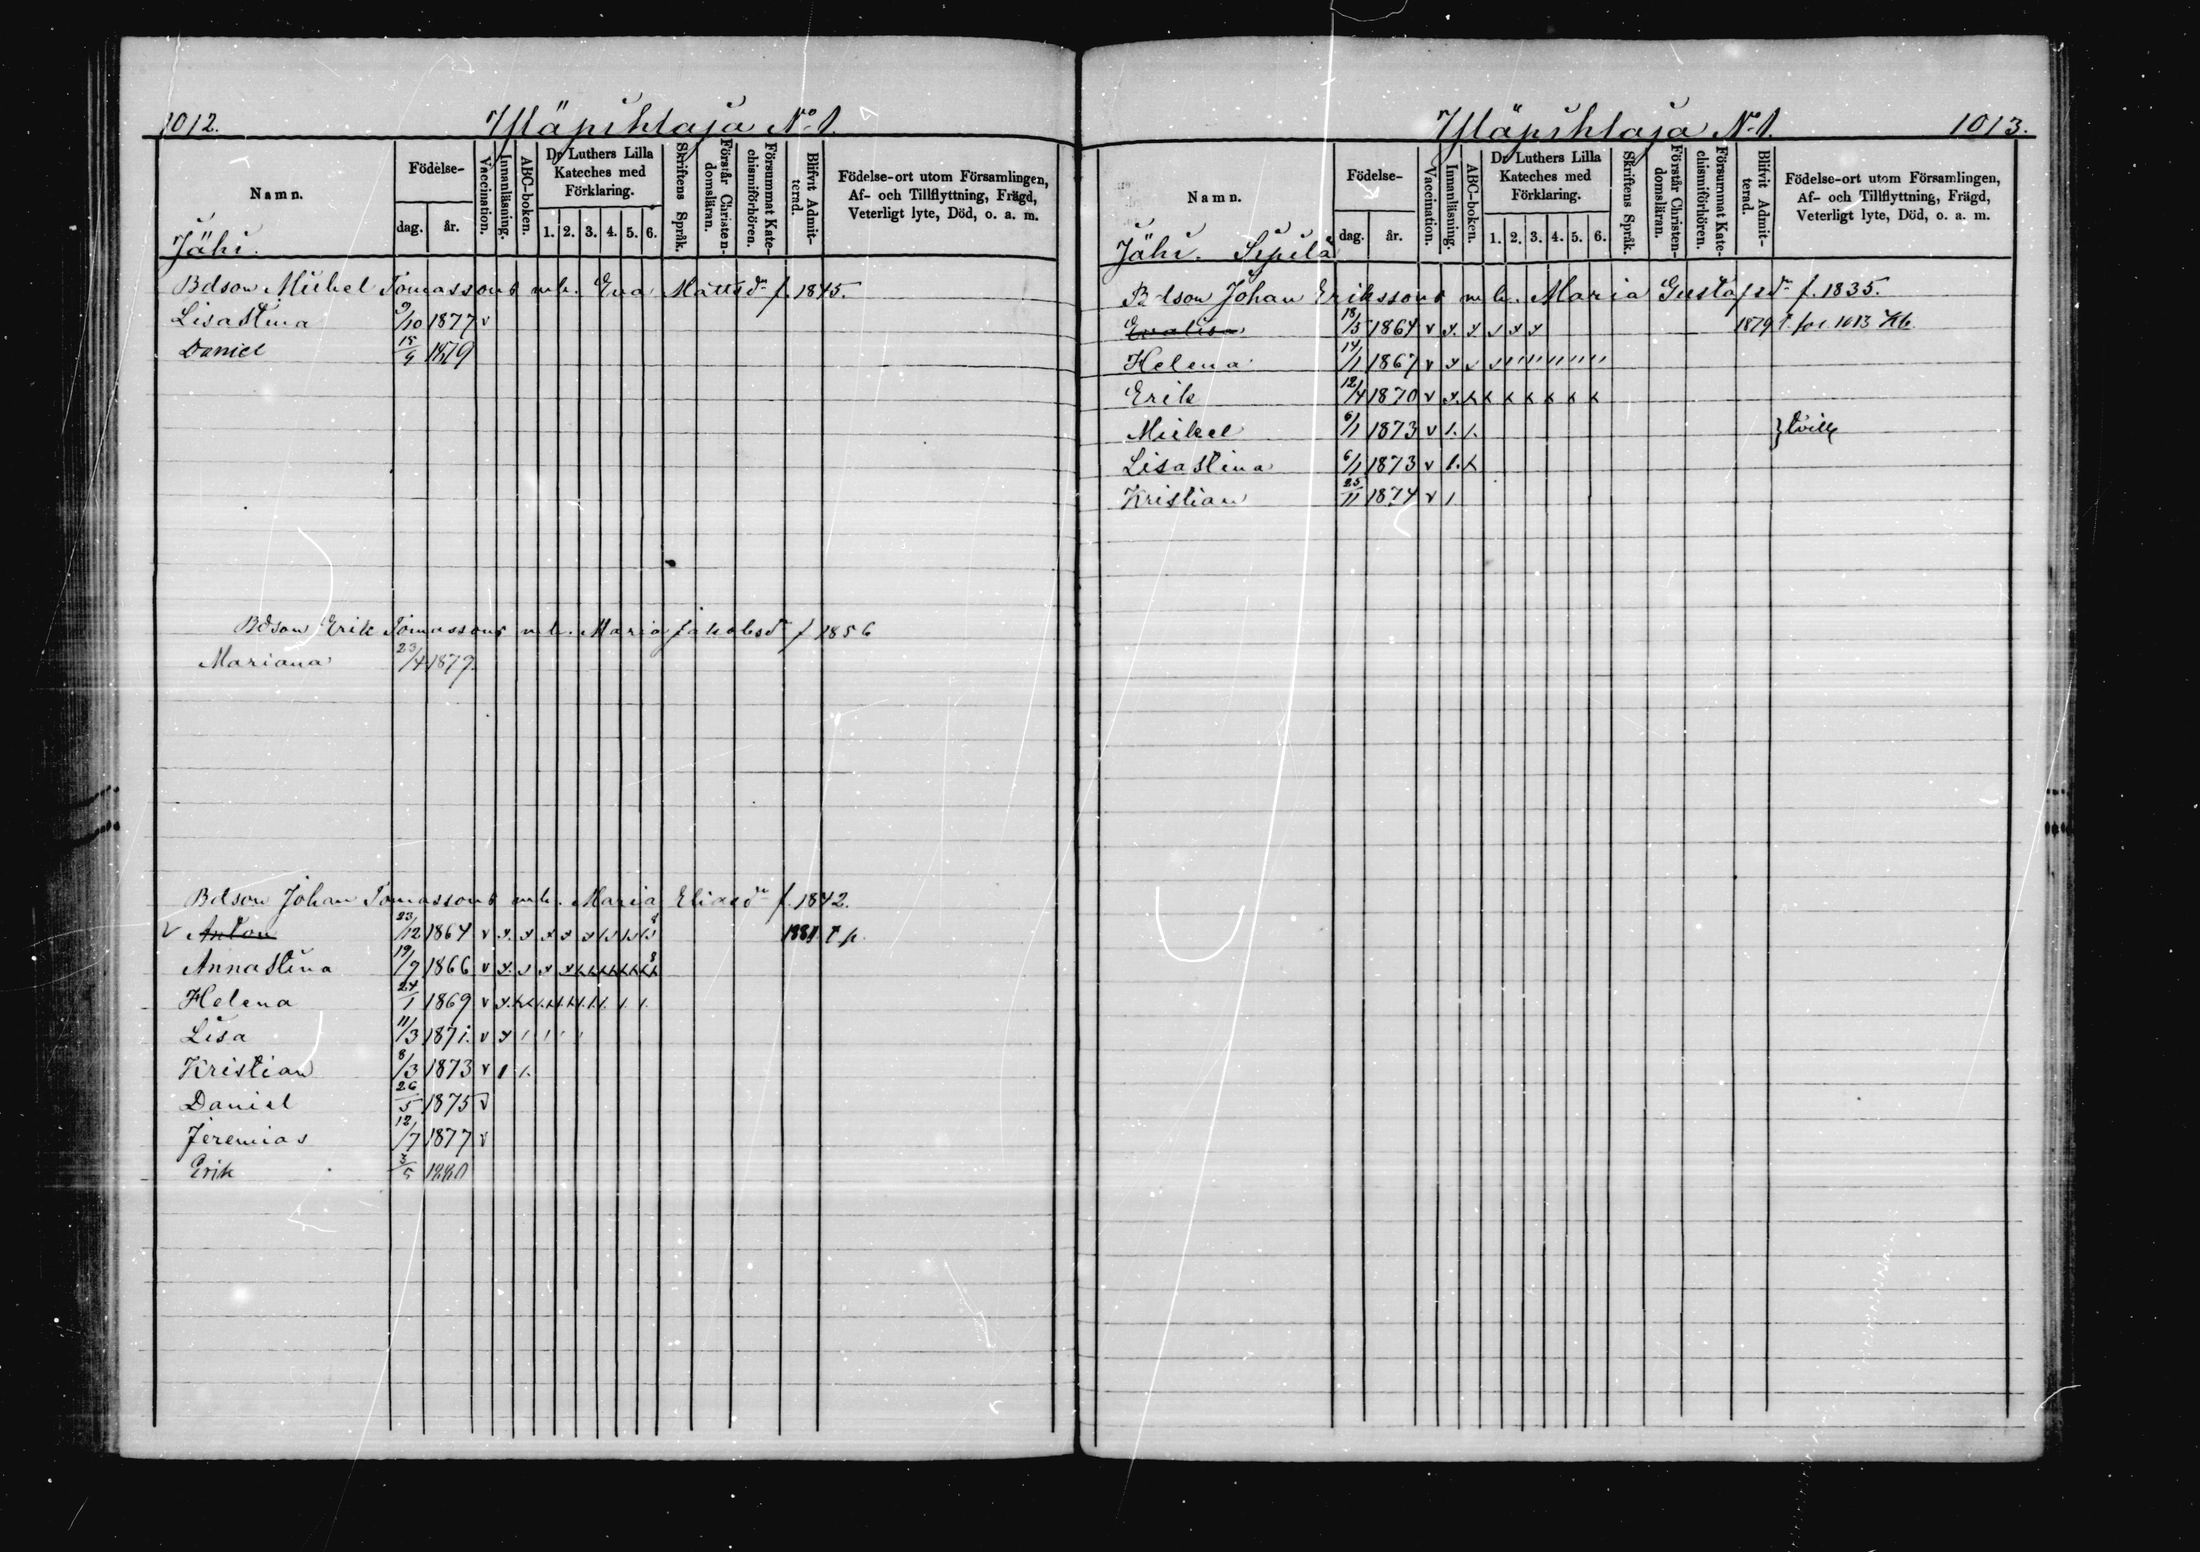 1012.
Yläpihlaja No 1.
Namn.
Födelse-
dag.
år.
Vaccination.
Innanläsning.
ABC-boken.
Dr Luthers Lilla Kateches med Förklaring.
1. 2. 3. 4. 5. 6.
Skriftens Språk.
Förstår Christendomsläran.
Försummat Katechismiförhören.
Blifvit Admitterad.
Födelse-ort utom Församlingen, Af- och Tillflyttning, Frägd, Veterligt lyte, Död, o. a. m.
Jähi.
Bdson Mickel Tomassons m h. Eva Mattsdr f. 1845.
Lisastina 9/10 1877 v
Daniel 15/9 1879
Bdson Erik Tomassons m h. Maria Jakobsdr f 1856
Mariana 23/4 1879
Bdson Johan Tomassons m h. Maria Eliasdr f. 1842.
v Anton 23/12 1864 v 1881
Annastina 19/7 1866 v
Helena 24/1 1869 v
Lisa 11/3 1871. v
Kristian 8/3 1873 v
Daniel 26/5 1875 v
Jeremias 12/7 1877 v
Erik 3/5 1880
Yläpihlaja No 1.
1013.
Namn.
Födelse-
dag.
år.
Vaccination.
Innanläsning.
ABC-boken.
Dr Luthers Lilla Kateches med Förklaring.
1. 2. 3. 4. 5. 6.
Skriftens Språk.
Förstår Christendomsläran.
Försummat Katechismiförhören.
Blifvit Admitterad.
Födelse-ort utom Församlingen, Af- och Tillflyttning, Frägd, Veterligt lyte, Död, o. a. m.
Jähi. Sipilä
Bdson Johan Erikssons m h. Maria Gustafsdr f. 1835.
Evalisa 18/5 1864 v 1879 1013
Helena 14/1 1867 v
Erik 12/4 1870 v
Mickel 6/1 1873 v } tvill
Lisastina 6/1 1873 v
Kristian 25/11 1874 v